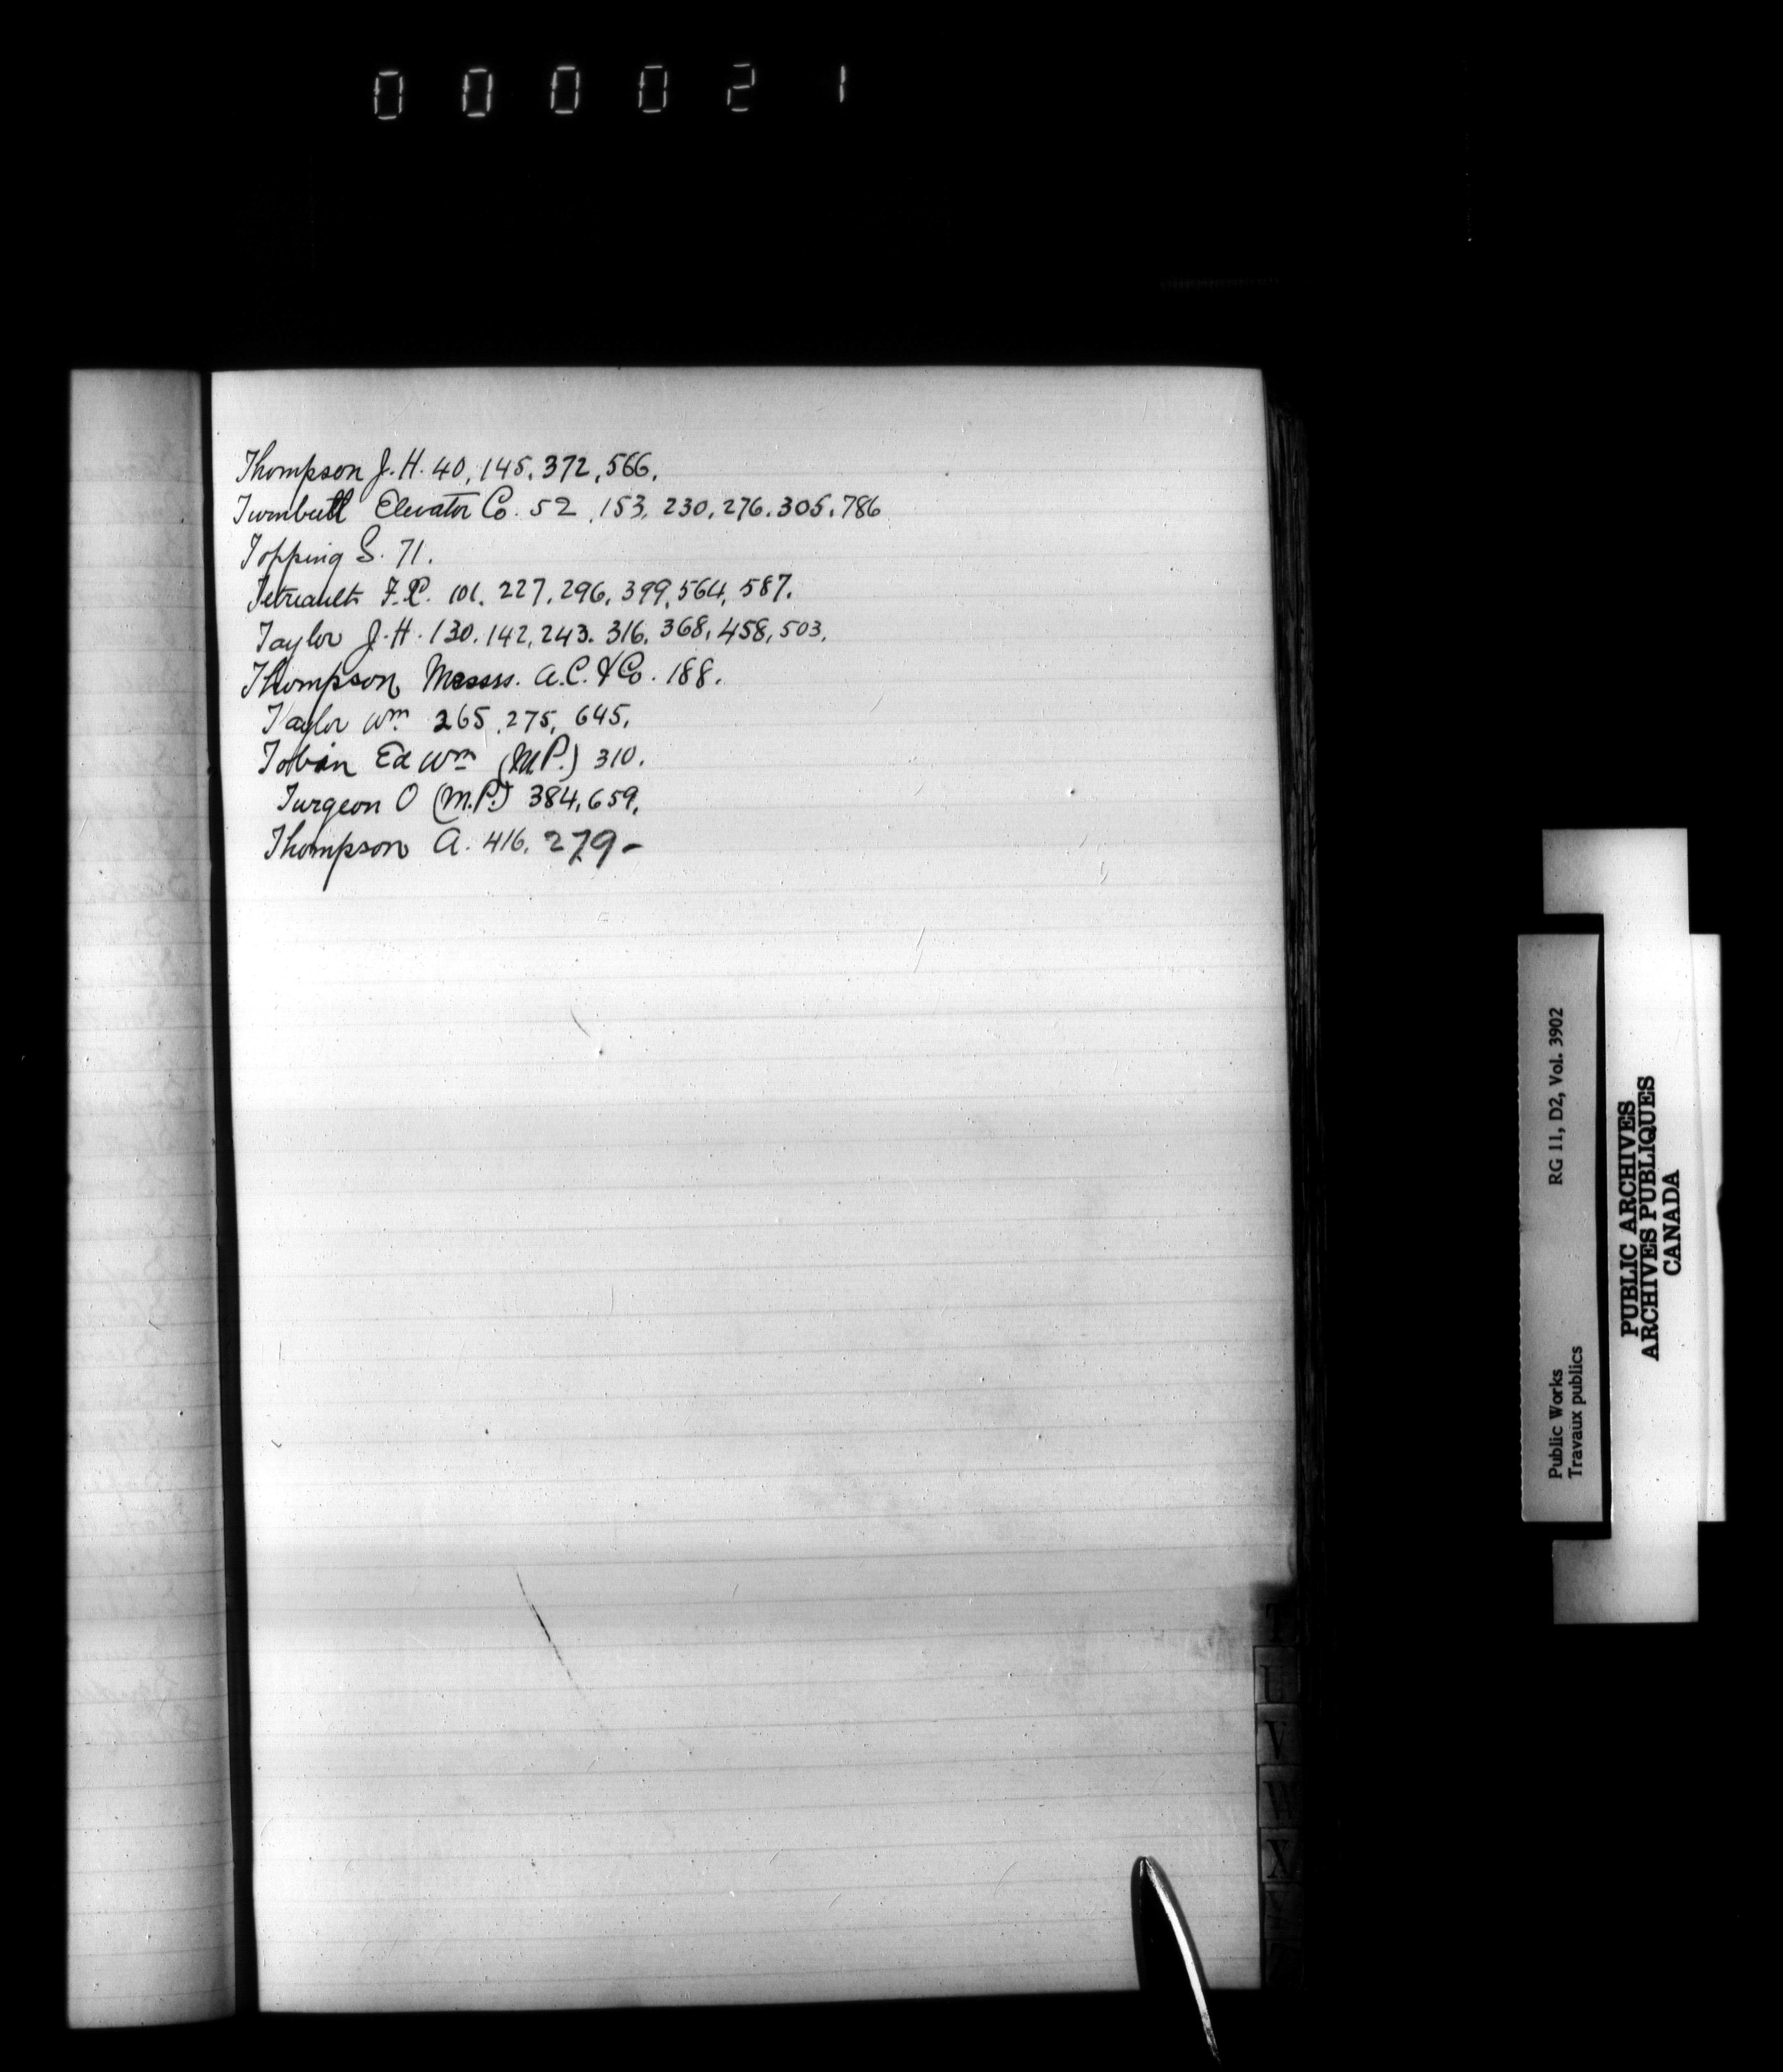 000021
Thompson J. H. 40, 145, 372, 566.
Turnbull Elevator Co. 52, 153, 230, 276, 305, 786
Topping S. 71.
Tetreault F.X. 101, 227, 296, 399, 564, 587.
Taylor J. H. 130, 142, 243, 316, 368, 458, 503.
Thompson Messrs. A.C. & Co. 188.
Taylor Wm 265, 275, 645.
Tobin Ed Wm (M.P.) 310.
Turgeon O (M.P.) 384, 659.
Thompson A. 416. 279-
T
U
V
W
X
Public Works
Travaux publics
RG 11, D2, Vol. 3902
PUBLIC ARCHIVES
ARCHIVES PUBLIQUES
CANADA